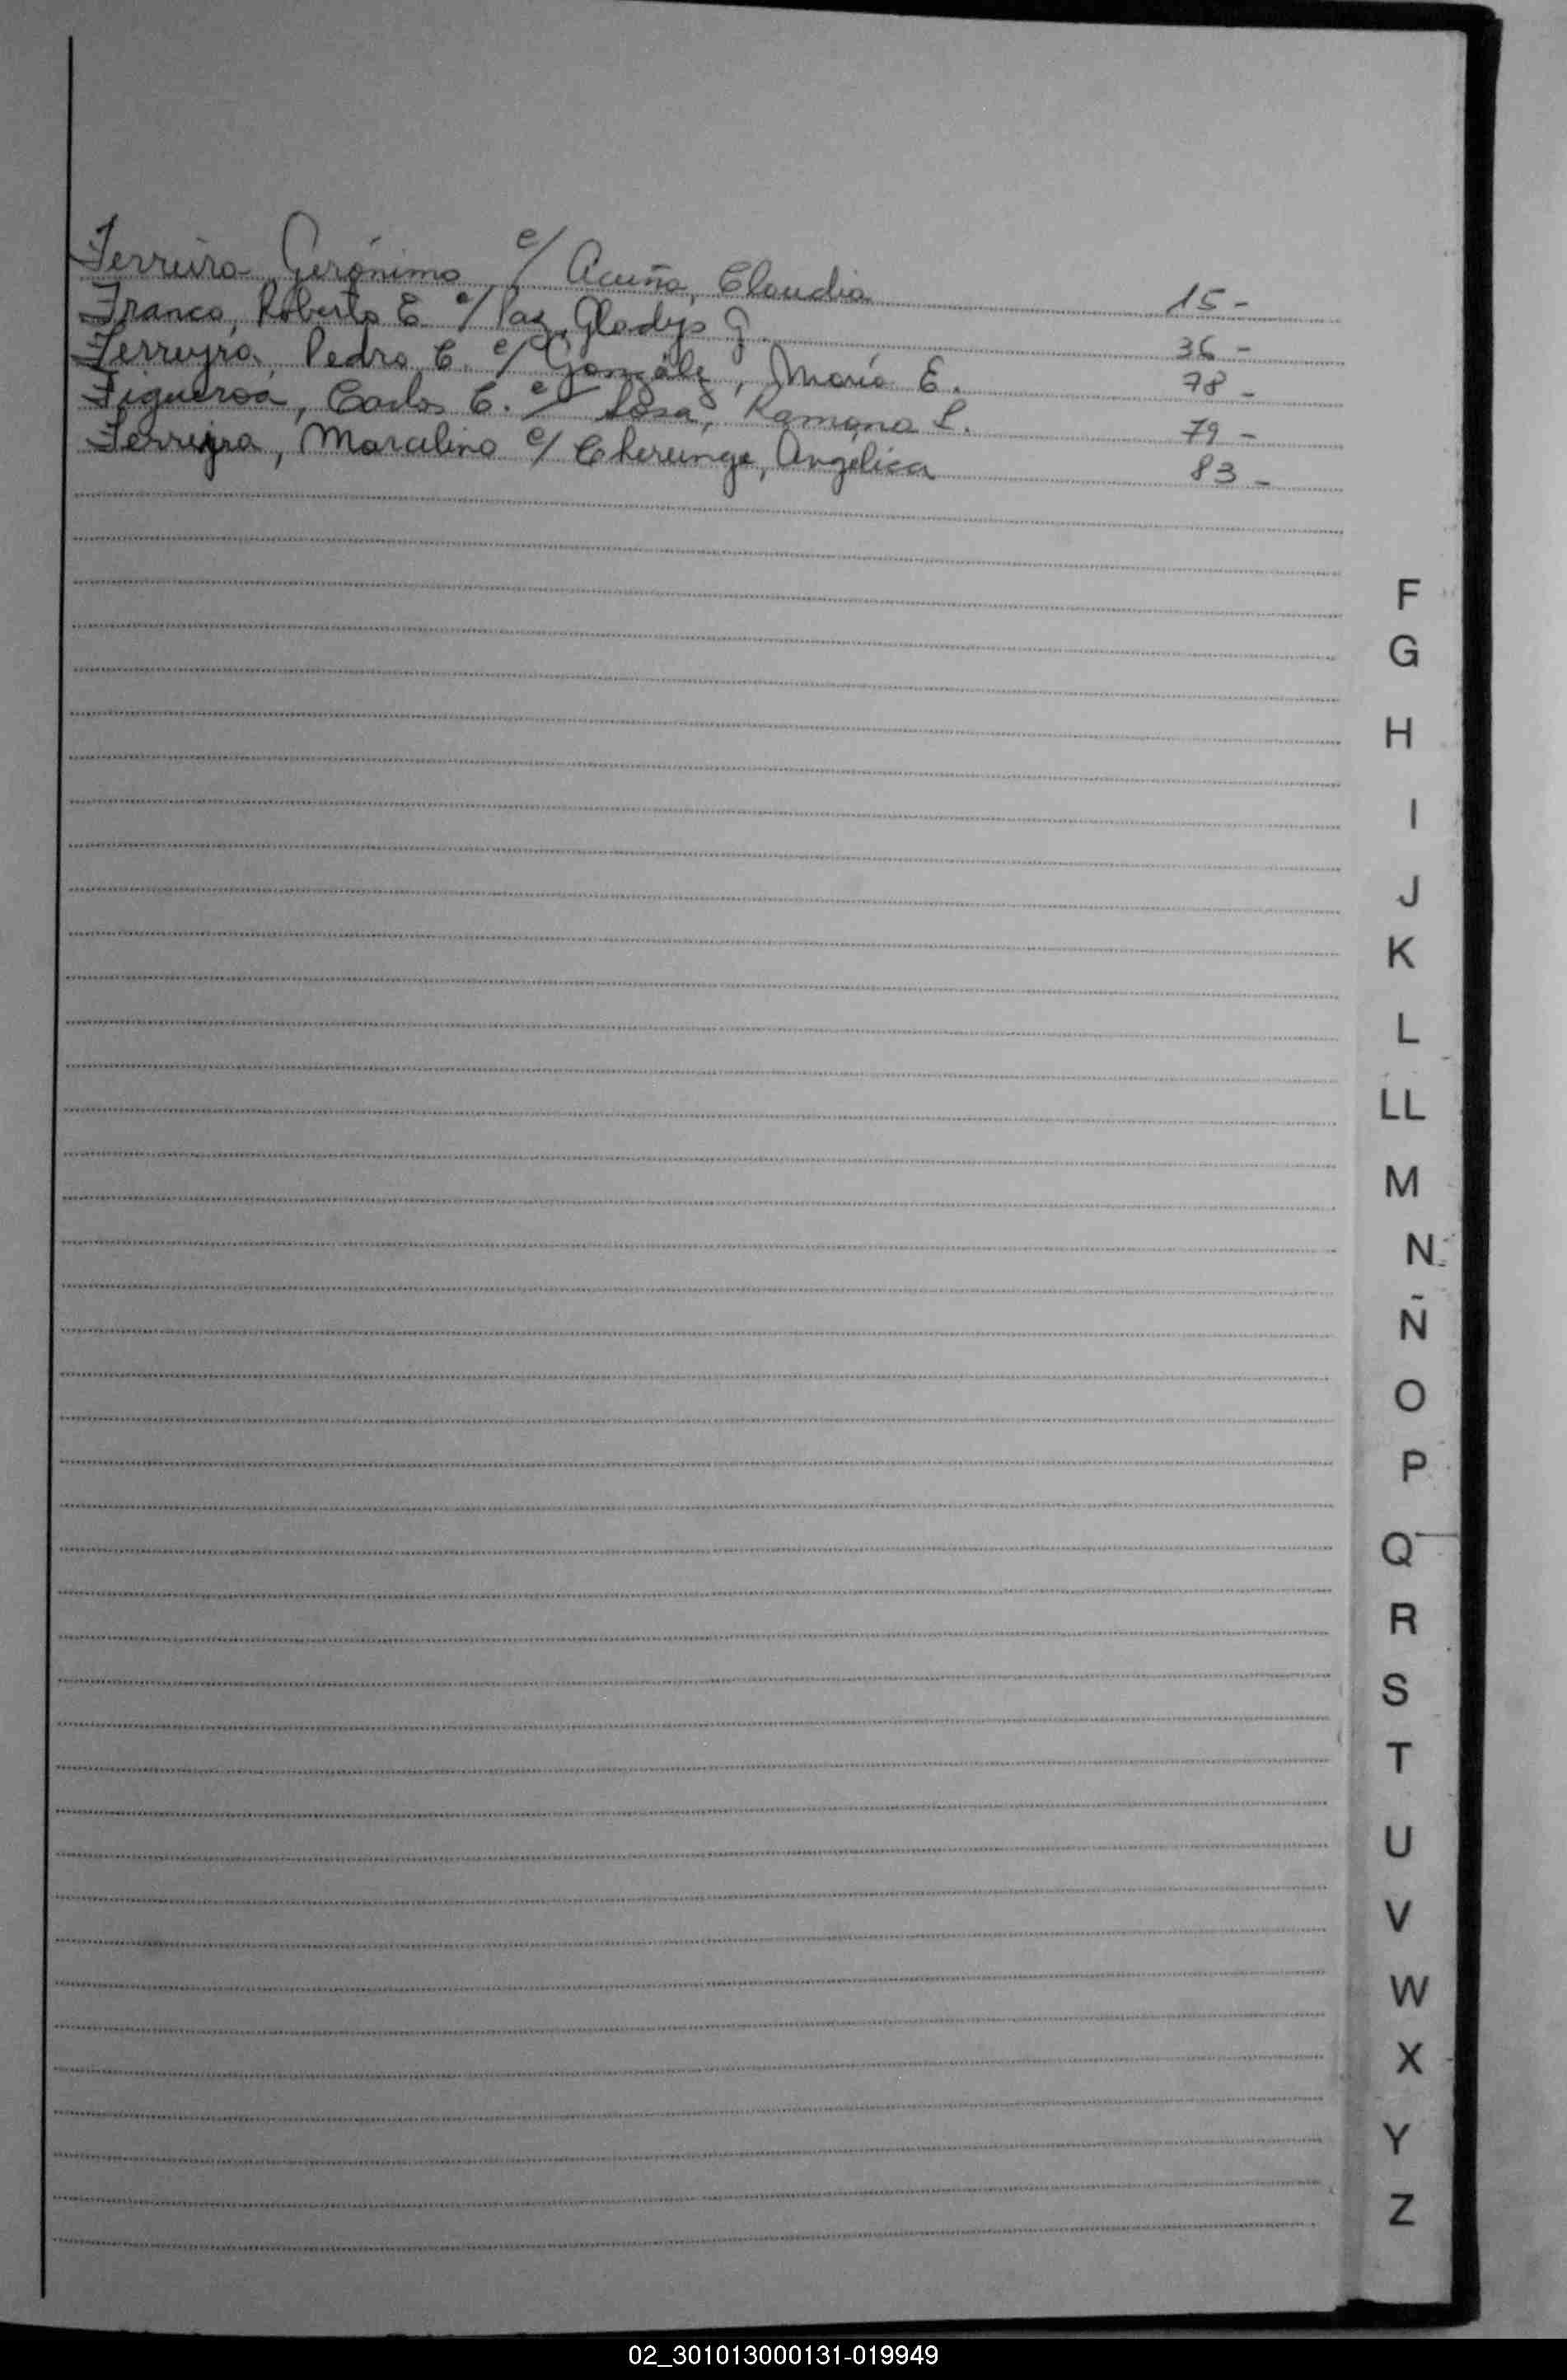 Ferreira Gerónimo c/ Acuña, Claudia 15-
Franco, Roberto E. c/ Paz, Gladys G. 36-
Ferreyra, Pedro C. c/ González, María E. 78-
Figueroa, Carlos C. c/ Sosa, Ramona L. 79-
Ferreyra, Marcelino c/ Cherunge, Angélica 83-
F
G
H
I
J
K
L
LL
M
N
Ñ
O
P
Q
R
S
T
U
V
W
X
Y
Z
02_301013000131-019949